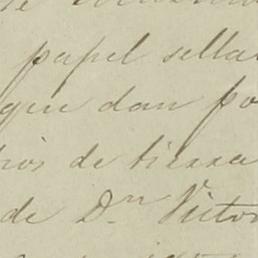 papel sella
que dan po
de tierra
de Dn Victor